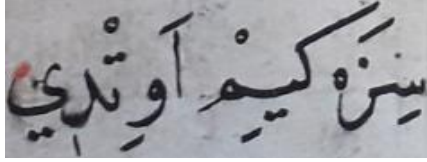 سِزَه كِيمْ اَوِتْدِي